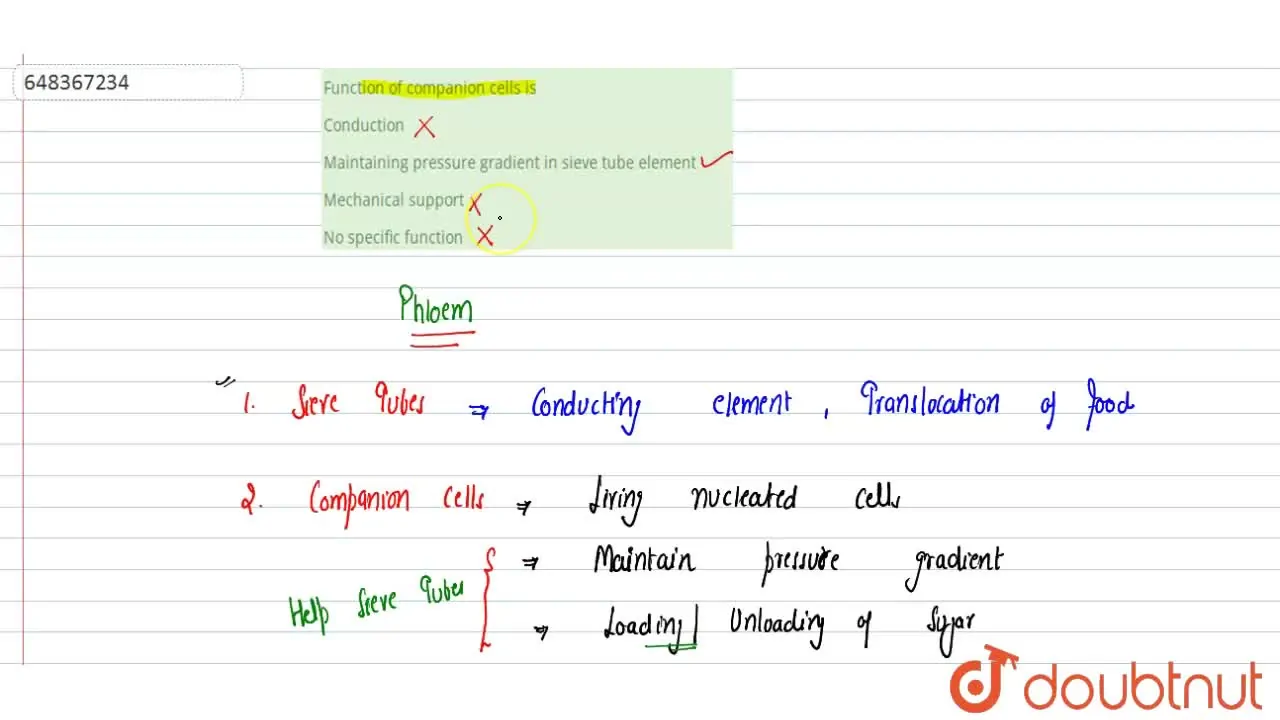 648367234
Function of companion cells is
Conduction X
Maintaining pressure gradient in sieve tube element ✓
Mechanical support X
No specific function X
Phloem
1. Sieve Tubes ⇒ Conducting element, Translocation of food
2. Companion Cells ⇒ Living nucleated cells
⇒ Maintain pressure gradient
Help Sieve Tubes
⇒ Loading| Unloading of Sugar
doubtnut